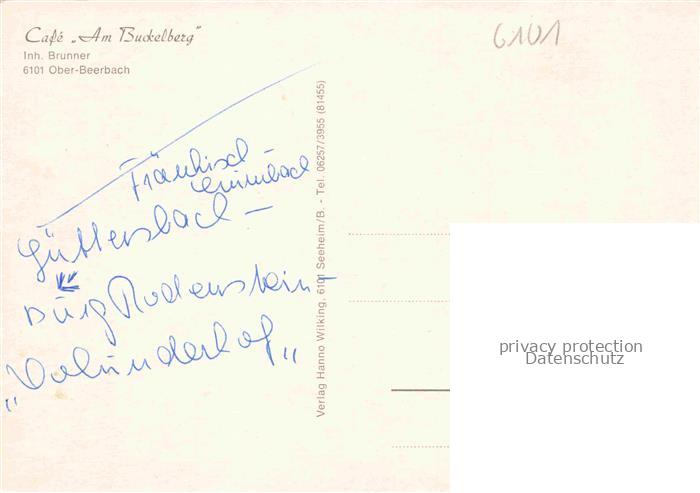 Café „Am Buckelberg"
Inh. Brunner
6101 Ober-Beerbach
6101
Fränkisch
Crumbach
Güttersbach –
Burg Rodenstein –
„Hofunderhof„
Verlag Hanno Wilking, 6101 Seeheim/B. - Tel. 06257/3955 (81455)
privacy protection
Datenschutz